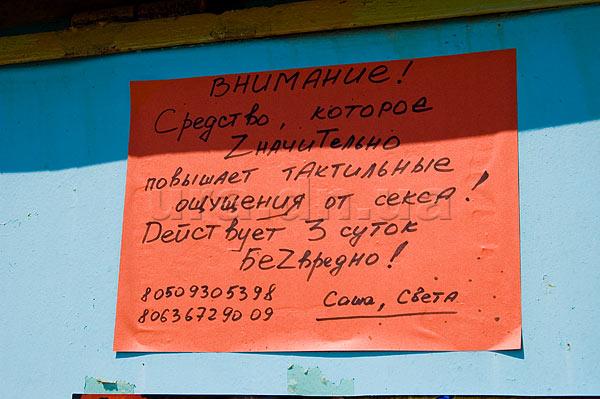 ВНИМАНИЕ!
Средство, которое
Zначительно
повышает тактильные
ощущения от секса!
Действует 3 суток
БеZвредно!
80509305398
80636729009
Саша, Света